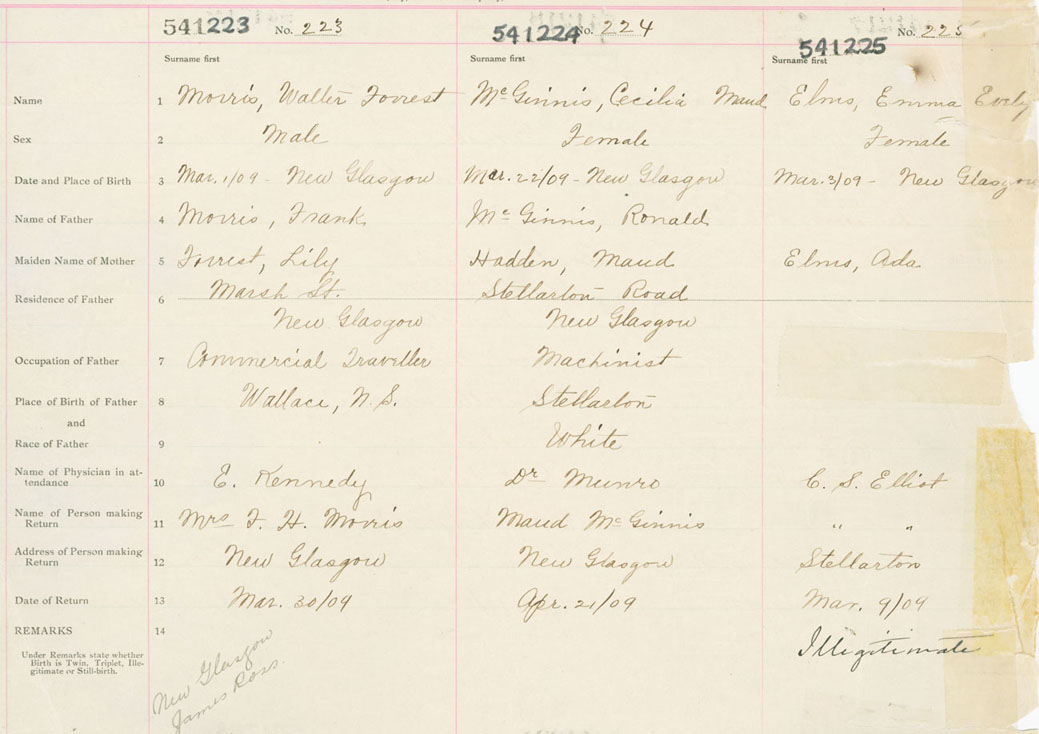 541223 No. 223 541224 No. 224 541225 No. 225
Surname first Surname first Surname first
Name 1 Morris, Walter Forrest McGinnis, Cecilia Maud Elms, Emma
Sex 2 Male Female Female
Date and Place of Birth 3 Mar. 1/09 - New Glasgow Mar. 22/09 - New Glasgow Mar. 3/09 - New Glasgow
Name of Father 4 Morris, Frank McGinnis, Ronald
Maiden Name of Mother 5 Forrest, Lily Hadden, Maud Elms, Ada
Residence of Father 6 Marsh St. Stellarton Road
New Glasgow New Glasgow
Occupation of Father 7 Commercial Traveller Machinist
Place of Birth of Father 8 Wallace, N.S. Stellarton
and
Race of Father 9 White
Name of Physician in at-
tendance 10 E. Kennedy Dr Munro C. S. Elliot
Name of Person making
Return 11 Mrs F. H. Morris Maud McGinnis " "
Address of Person making
Return 12 New Glasgow New Glasgow Stellarton
Date of Return 13 Mar. 30/09 Apr. 21/09 Mar. 9/09
REMARKS 14
Under Remarks state whether
Birth is Twin, Triplet, Ille-
gitimate or Still-birth.
Illegitimate
New Glasgow
James Ross.